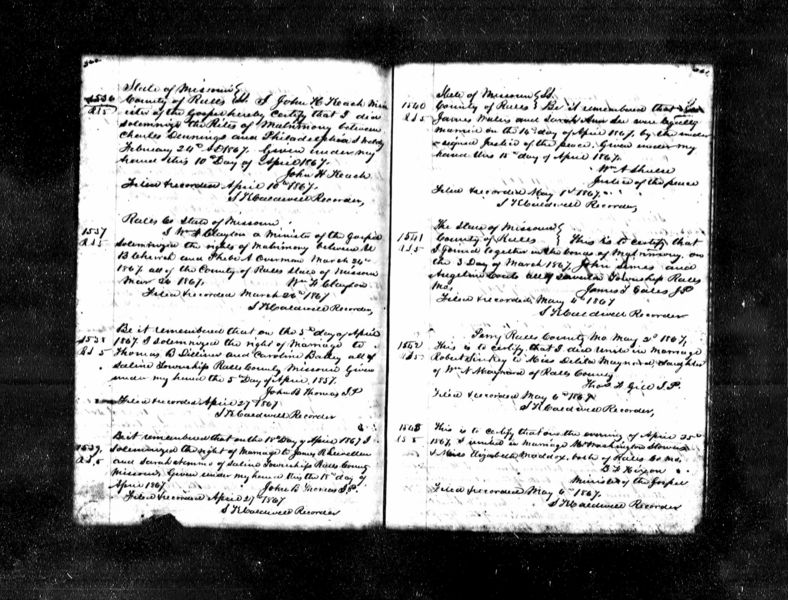 State of Missouri
1536 County of Ralls I John H Keach Min
ister of the Gospel hereby Certify that I did
solemnize the Rites of Matrimony between
Charles Jennings and Philadelphia
February 24th 1867. Given under my
hand this 10th Day of April 1867.
John H Keach
Filed & recorded April 10th 1867.
S K Caldwell Recorder,
Ralls Co State of Missouri
1537 I Wm F Clayton a Minister of the Gospel
Solemnized the rights of Matrimony between
and Phebe A Overman March 24th
1867. all of the County of Ralls State of Missouri
Mar 24 1867. Wm F Clayton
Filed & recorded March 26th 1867
S K Caldwell Recorder,
1538 Be it remembered that on the 5th day of April
1867 I Solemnized the right of Marriage to
Thomas B and Caroline Bailey all of
Saline Township Ralls County Missouri Given
under my hand the 5th Day of April, 1857.
John B Thomas J.P.
Filed & recorded April 27th 1867
S K Caldwell Recorder
1539 Be it remembered that on the 18th Day of April 1867 I
Solemnized the right of Marriage to James
and Sarah of Saline Township Ralls County
Missouri, Given under my hand this the 18th day of
April 1867 John B Thomas J.P.
Filed & recorded April 27th 1867
S K Caldwell Recorder
State of Missouri
1540 County of Ralls Be it remembered that
James and Sarah Ann were legally
married on the 14th day of April 1867, by the under
-signed Justice of the peace, Given under my
hand this 15th day of April 1867.
Wm A
Justice of the peace
Filed & recorded May 1st 1867.
S K Caldwell Recorder,
The State of Missouri
1541 County of Ralls This is to certify that
I joined together in the bonds of Matrimony, on
the 3 Day of March 1867, John and
Angeline all of Township Ralls
Mo. James T J.P.
Filed & recorded May 6th 1867
S K Caldwell Recorder
Perry Ralls County Mo May 2d 1867,
1542 This is to certify that I did unite in Marriage
Robert to Miss Maynard, daughter
of Wm A Maynard of Ralls County
Thos J Gill J.P.
Filed & recorded May 6th 1867
S K Caldwell Recorder,
1543 This is to certify that on the evening of April 25th
1867, I united in marriage Mr Washington
& Miss Elizabeth Maddox, both of Ralls Co Mo
B F Hixson
Minister of the Gospel
Filed & recorded May 6th 1867.
S K Caldwell Recorder